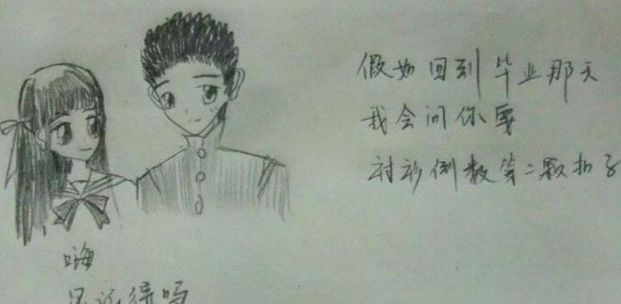 假如回到毕业那天
我会问你要
衬衫倒数第二颗扣子
嗨
还记得吗